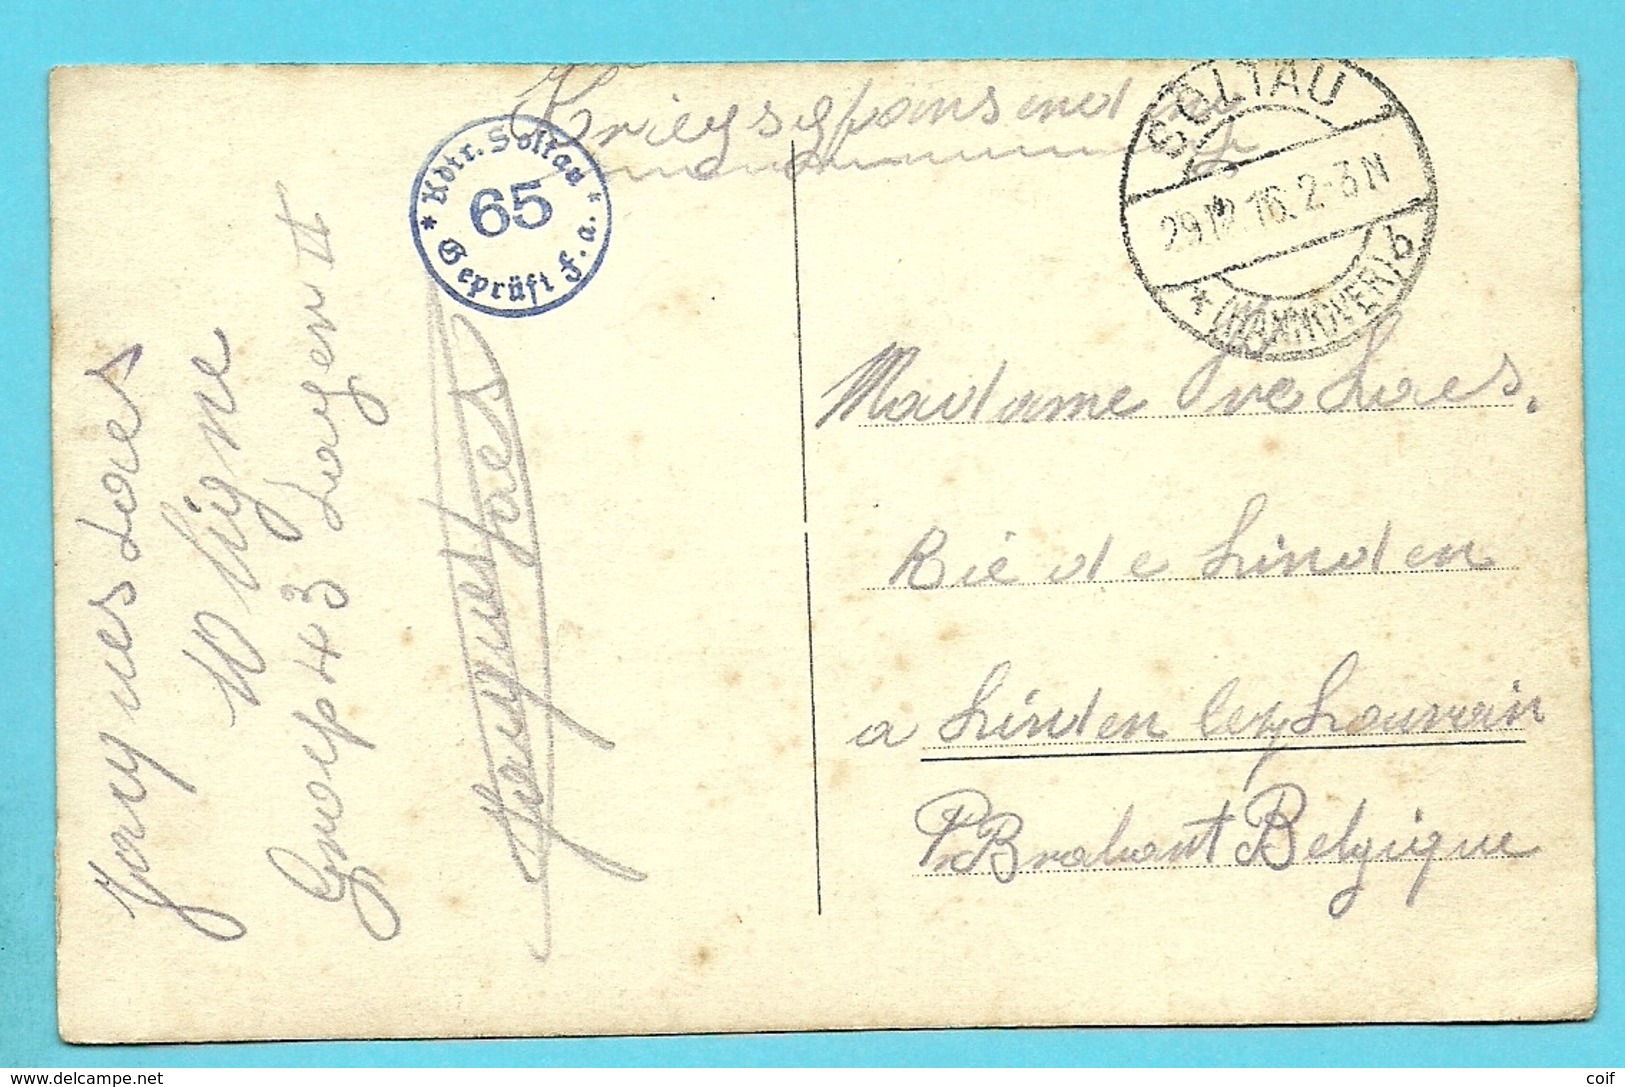 Kriegsgfansendung
* Kdtr. Soltau *
65
Geprüft F. a.
SOLTAU
29.12.16.2-3N
* (HANNOVER) b
Jacques Loes
10 ligne
Group 43 Lager II
Jacques Loes
Madame Ve Loes.
Rie de Linden
a Linden lez Louvain
Pr Brabant Belgique
delcampe.net
coif